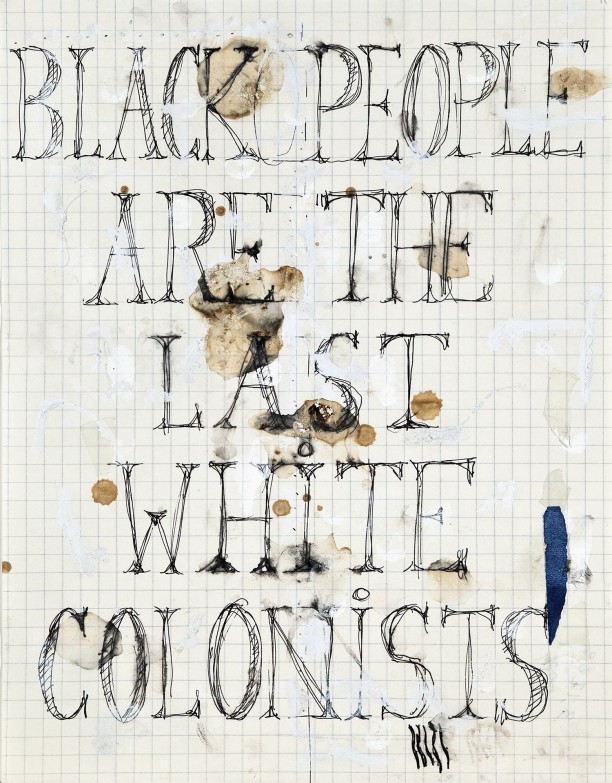 BLACK PEOPLE
ARE THE
LAST
WHITE
COLONiSTS